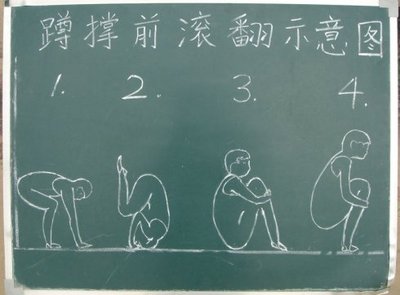 蹲撑前滚翻示意图
1. 2. 3. 4.